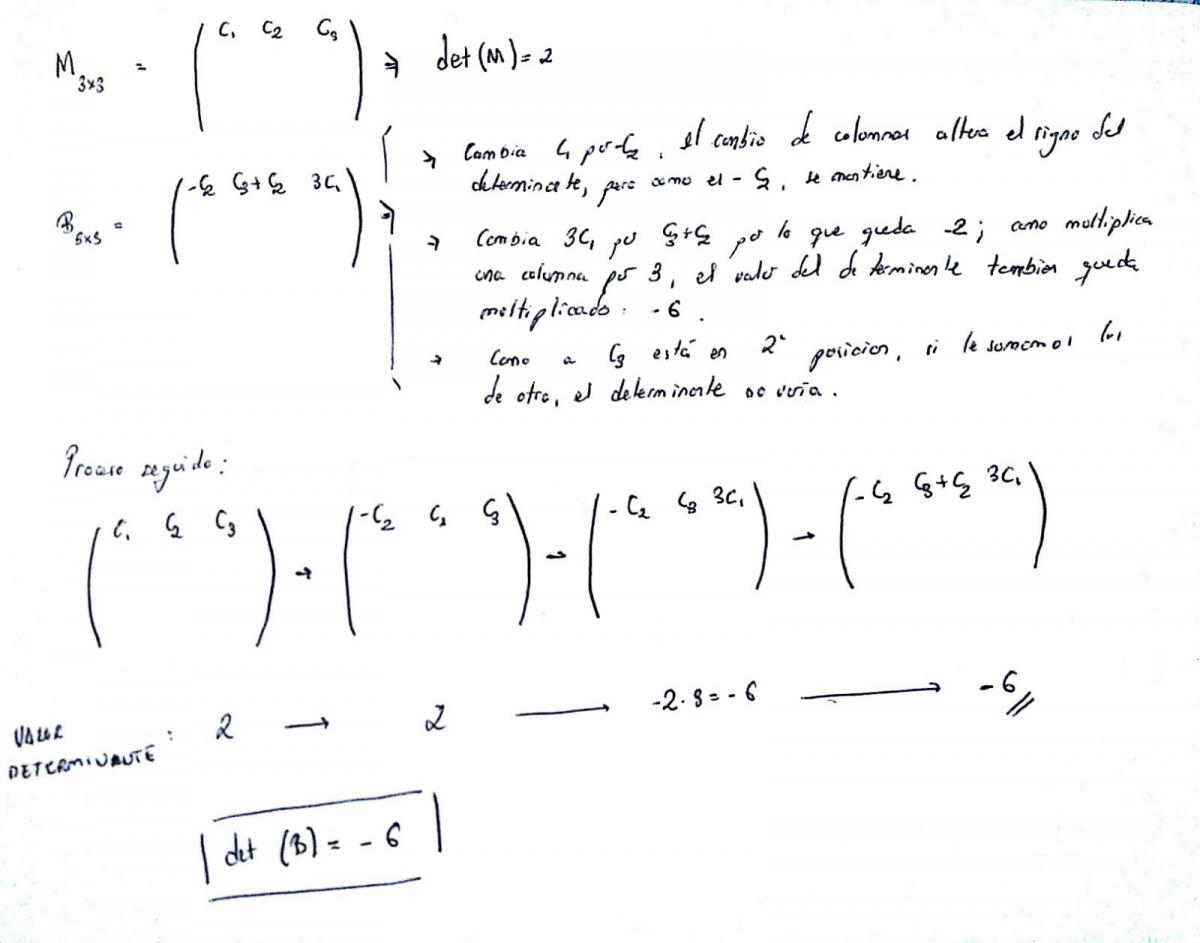 M3x3 = ( C1 C2 C3 ) ⇒ det (M) = 2
B3x3 = ( -C2 C3+C2 3C1 ) ⇒
→ Cambia C1 por -C2, el cambio de columnas altera el signo del
determinante, pero como el -C2, se mantiene.
→ Cambia 3C1 por C3+C2 por lo que queda -2; como multiplica
una columna por 3, el valor del determinante tambien queda
multiplicado: -6.
→ Como a C3 está en 2ª posicion, si le sumamos
de otra, el determinante no varia.
Proceso seguido:
( C1 C2 C3 ) → ( -C2 C1 C3 ) → ( -C2 C3 3C1 ) → ( -C2 C3+C2 3C1 )
VALOR
DETERMINANTE : 2 → 2 → -2·3 = -6 → -6//
det (B) = -6